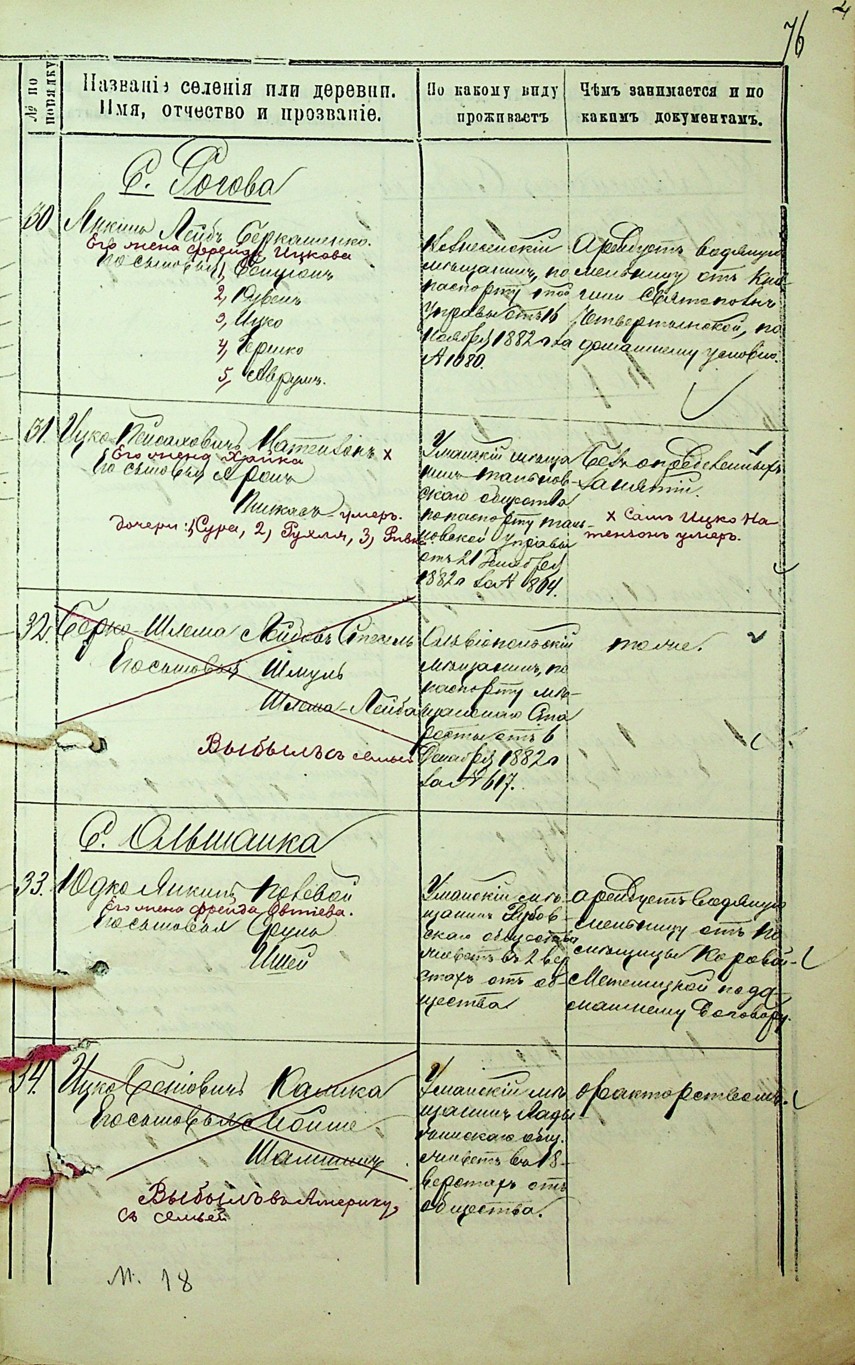 76
№ по порядку
Названіе селенія или деревни.
Имя, отчество и прозваніе.
По какому виду
проживаетъ
Чѣмъ занимается и по
какимъ документамъ.
С. Рогова
30
Янкель Лейбъ Беркашенко.
Его жена Фрейда Ицкова
Его сыновья 1,
2, Рувель
3, Ицко
4, Гершко
5, Аврумъ.
мѣщанинъ, по
паспорту той
управы отъ 16
Ноября 1882 г за
№ 1080.
Арендуетъ водяную
мельницу отъ Кня
гини Святополкъ
Четвертынской, по
домашнему условію.
31.
Ицко Пейсаховичъ Натензонъ x
Его жена Хайка
Его сыновья Аронъ
Пинхасъ умеръ.
дочери: 1, Сура, 2, Рухля, 3, Ривка
Уманскій мѣща
нинъ тальнов-
скаго общества
по паспорту таль-
новской управы
отъ 21 Декабря
1882 г за № 1804.
Безъ опредѣленныхъ
занятій.
x Самъ Ицко На
тензонъ умеръ.
32.
Берко-Шлема Лейбовъ
Его сыновья Шмуль
Шлема-Лейба
Выбылъ съ семьей
Ольвіопольскій
мѣщанинъ, по
паспорту мѣ-
щанскаго Ста
росты отъ 6
Декабря 1882 г
за № 617.
тоже.
С. Ольшанка
33.
Юдко Янкелъ Полевой
Его жена Фрейда Овшіева.
Его сыновья Сруль
Ишей
Уманскій мѣ-
щанинъ
скаго общества
живетъ въ 2 вер
стахъ отъ об-
щества
арендуетъ водяную
мельницу отъ по
мѣщицы
по до-
машнему договору.
34.
Ицко Беніовичъ Калика
Его сыновья Мойше
Выбылъ въ Америку,
съ семьей
Уманскій мѣ
щанинъ Лады
жинскаго общ.
живетъ въ 18
верстахъ отъ
общества.
факторствомъ.
М. 18